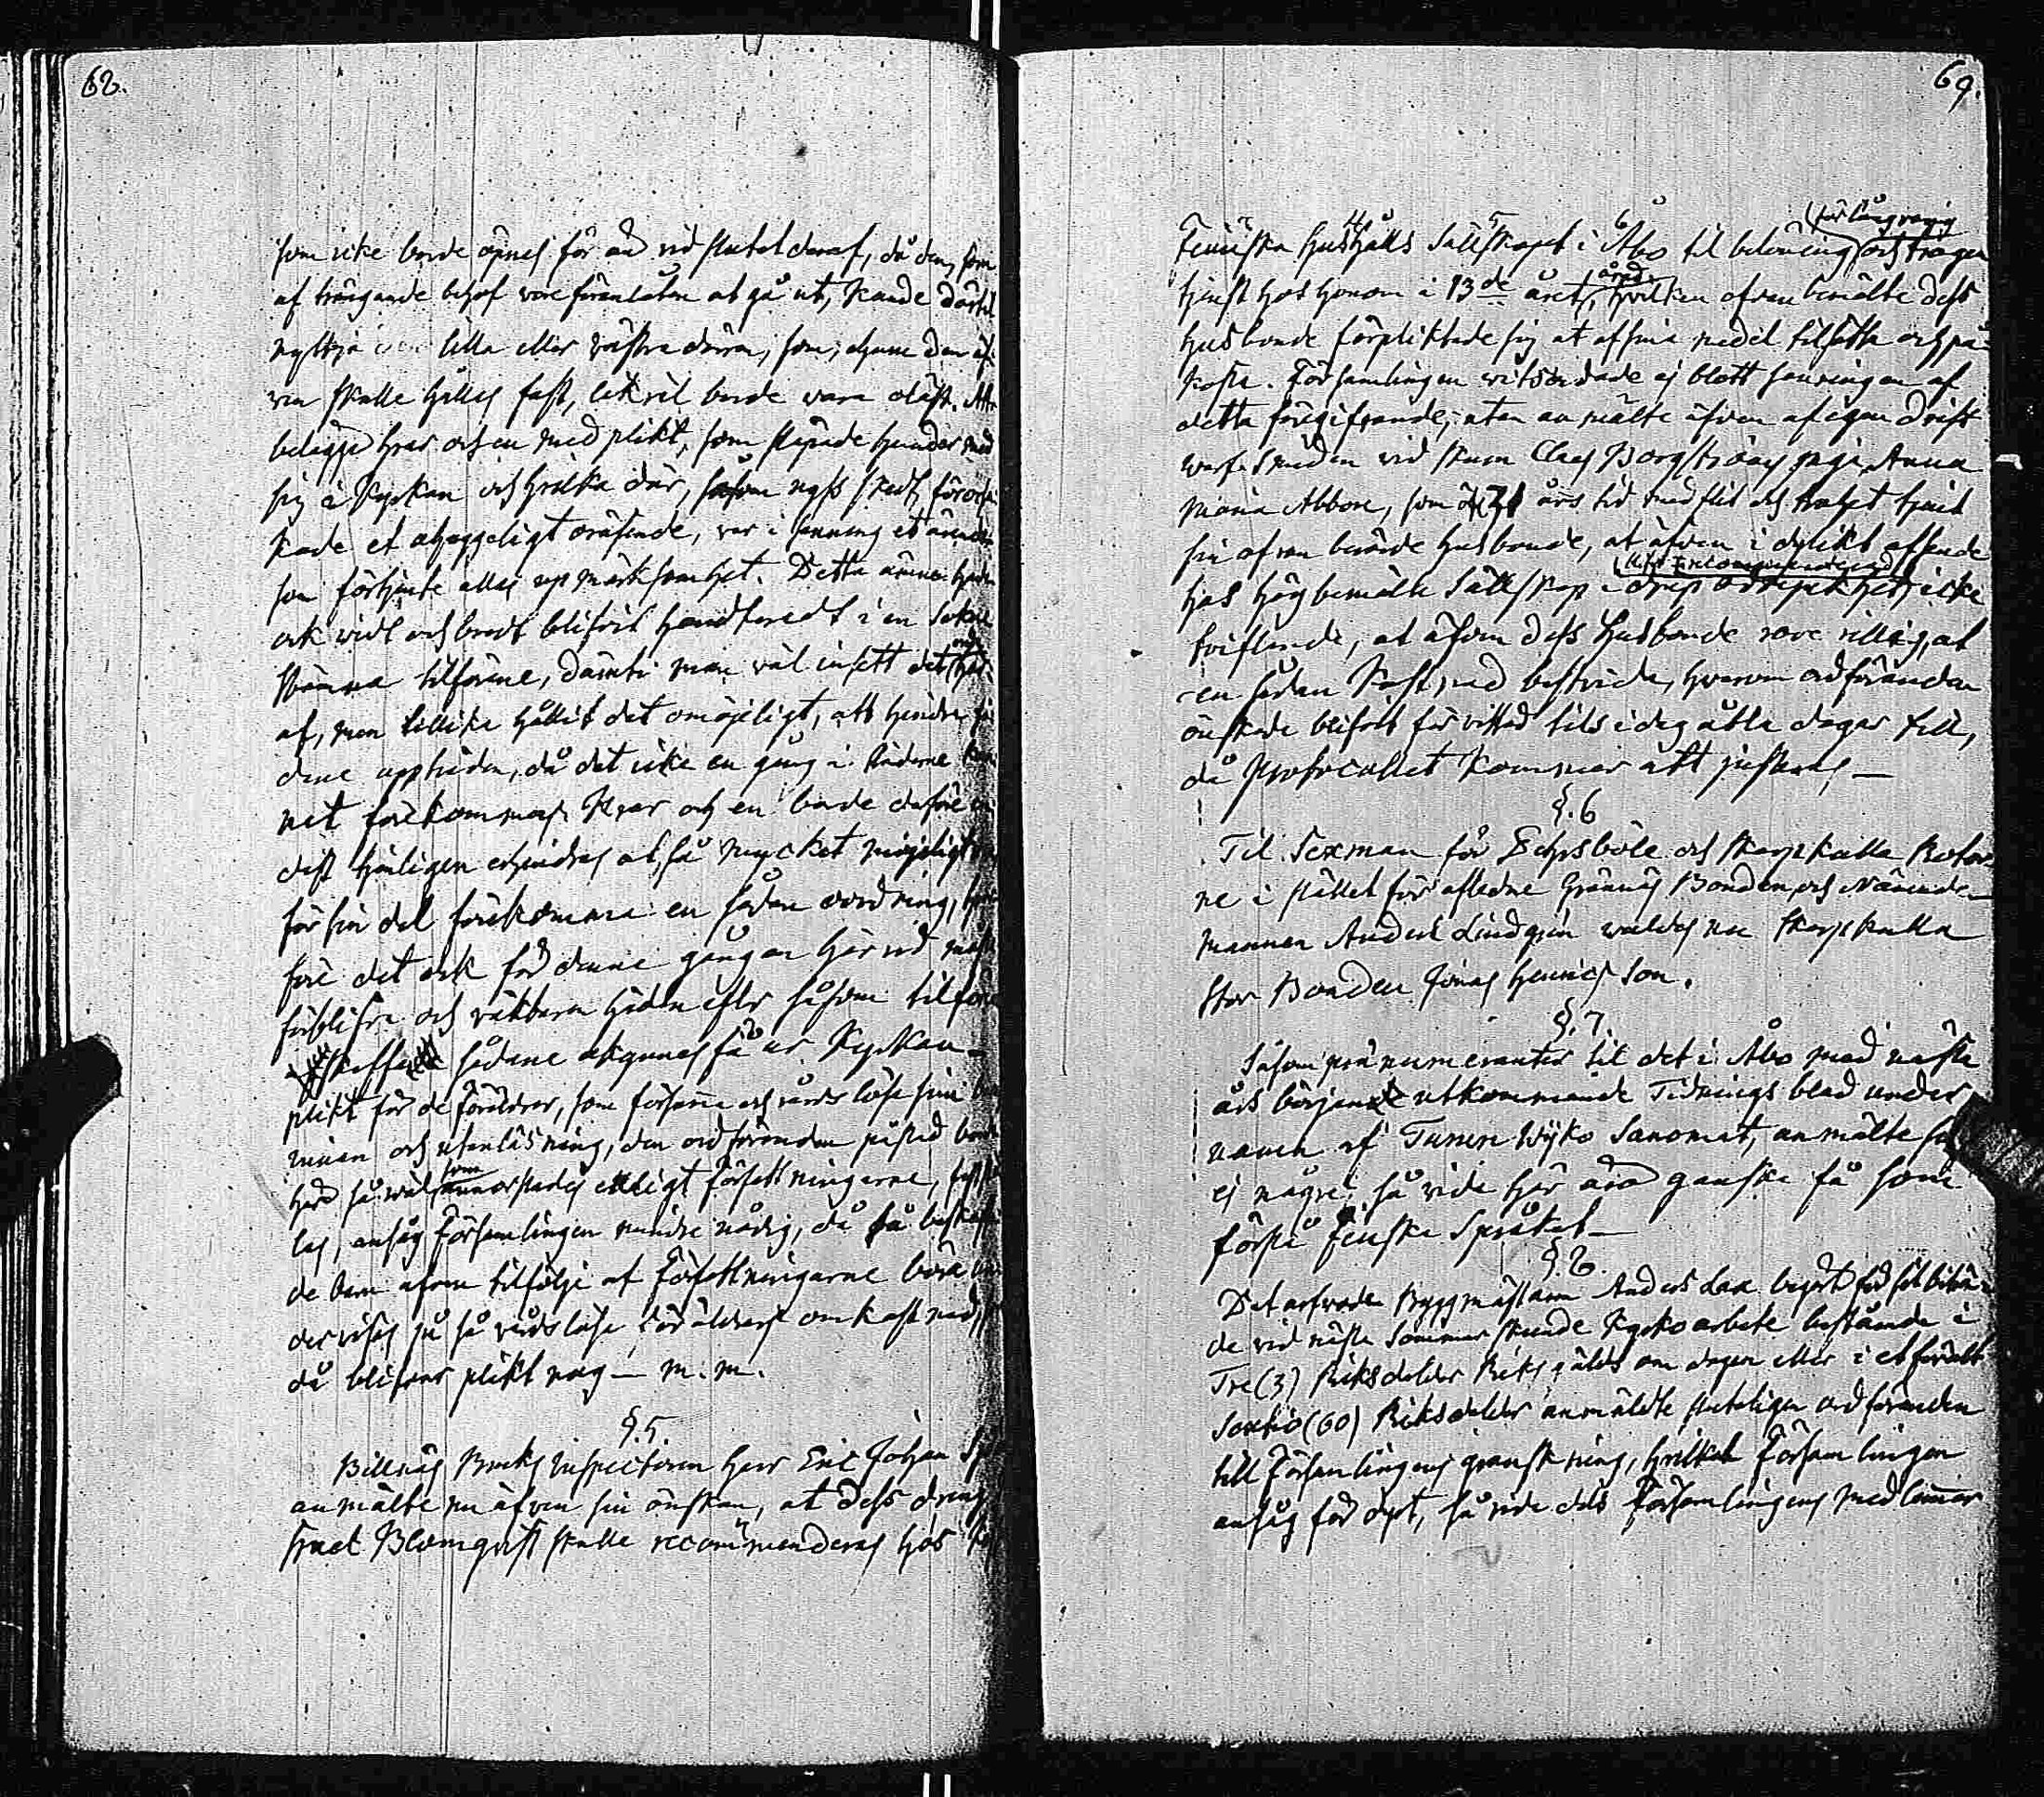 68.
som icke borde öpnas för än vid slutet deraf, då den, som
af trängande behof vore föranlåten at gå ut, kunde därtil
nyttja lilla eller västra dörren, som, ehuru den äf-
ven skulle hållas fast, likväl borde vara oläst. Att
belägga hvar och en med plikt, som släpade hundar med
sig i Kyrkan och hvilka där, såsom nyss skedt, föror-
kade et ohyggeligt oväsende, var i sanning et ämne
som förtjente allas upmärksamhet. Detta ämne hade
ock vidt och bredt blifvit handteradt i en Sokne
stämma tilförene, dærute man väl insett det onda här-
af, men tillika hållit det omöjeligt, att hindra så-
dane upptåden, då det icke en gång i Städerne kun-
nat förekommas. Hvar och en borde derföre
dess höfligen erhindras at, så mycket möjeligt
för sin del förekomma en sådan oordning,
före det ock för denne gången här vid måste
förblifva och väktaren hädanefter såsom tilförene
skaffa sådane okynnes få ur Kyrkan.
plikt för de föräldrar, som försumma och vårdslösa sina barns
innan och utanläsning, den ordföranden påstod borde
här så wäl som annorstädes enligt Författningarne,
las, ansåg Församlingen mindre nödig, då så beskaffa-
de barn äfven tilfölje af Författningarne böra un-
dervisas på så vårdslöse föräldrars omkostnad,
då blifver plikt nog _ m. m.
§. 5.
Billnäs Bruks Inspectoren Herr Eric Johan
anmälte nu äfven sin önskan, at dess dräng
Isaac Blomqvist skulle recommenderas hos
69.
Finska Hushålls Sällskapet i Åbo til belöning för långvarig och trogen
tjenst hos honom i 13de året, hvilken ofvanbemälte dess
husbonde förpliktade sig at af sina medel tilsätta och på-
kosta. Församlingen witsordade ej blott sanningen af
detta föregifvande, utan anmälte äfven af egen drift
warf-Smeden vid Skuru Claes Borgströms piga Anna
Maria Abbore, som i 21 års tid med flit och trohet tjent
sin ofvan berörde husbonde, at äfven i dylikt afseende
hos högbemälte Sällskap recommenderas icke
tviflande, at äfven dess Husbonde vore villig, at
en sådan kostnad bestrida, hvarom ordföranden
önskade blifva förvittad tils i dag åtta dagar till,
då Protocollet kommer att justeras _
§. 6
Til Sexman för Echrsböle och Skarpkulla Rotar-
ne i stället för afledne Grännäs Bonden och Nämnde-
mannen Anders Lindgrén waldes nu Skarpkulla
Stor Bonden Jonas Henricsson.
§. 7.
Såsom pränumeranter til det i Åbo med nästa
års början utkommande Tidnings blad under
namn af Turun Wijko Sanomat, anmälte sig
ej någre, så vida här äro ganska få som
förstå Finska Språket _
§. 8.
Det arfvode Byggmästaren Anders Lax begärt för sit biträ-
de vid nästa Sommar skeende Kyrkoarbete bestående i
Tre (3) Riksdaler Riksgälds om dagen eller i et för alt
Sextio (60) Riksdaler anmäldte sluteligen ordföranden
till Församlingens granskning, hvilket Församlingen
ansåg för dyrt, så vida dels Församlingens medlemmar